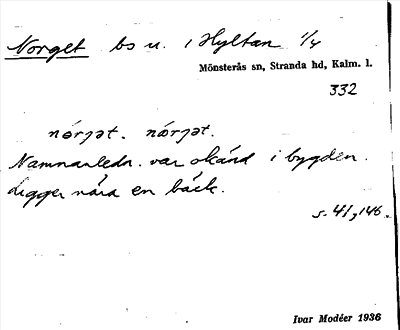 Norget bs u. i Hyltan 1/4
Mönsterås sn, Stranda hd, Kalm. l.
332
nórjət. nórjət.
Namnanledn. var okänd i bygden.
Ligger nära en bäck.
s. 41, 146.
Ivar Modéer 1936